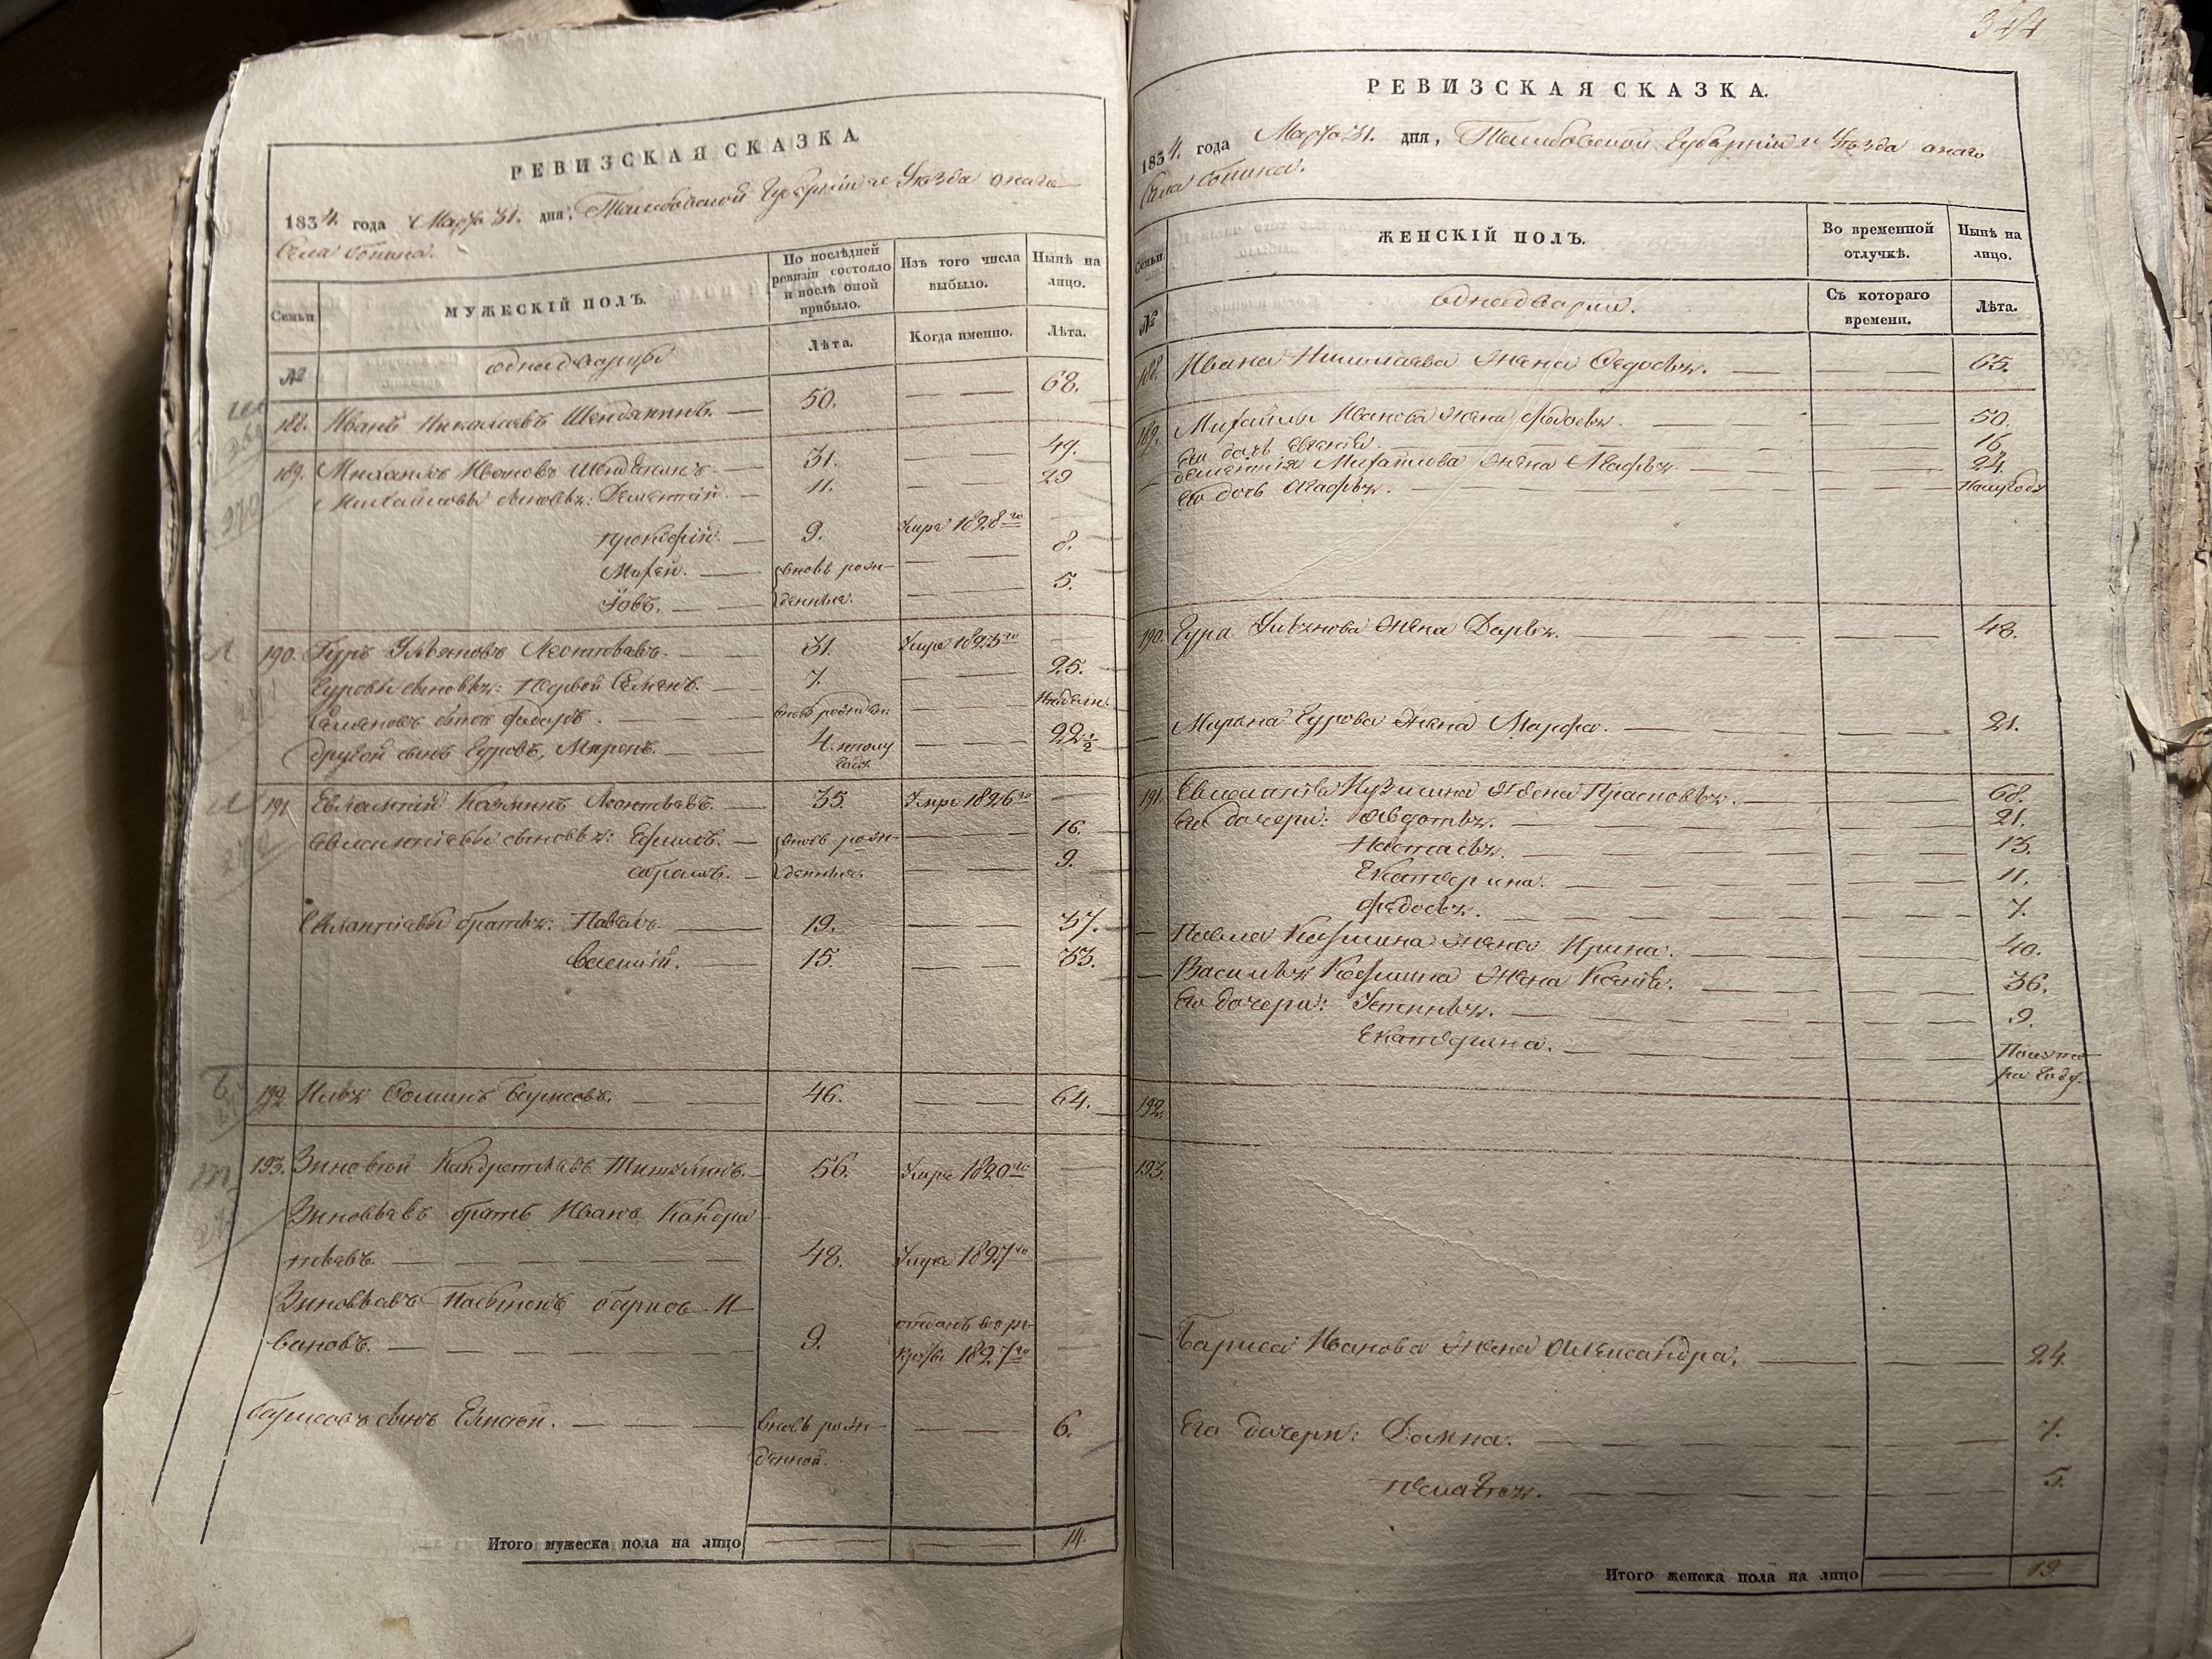 РЕВИЗСКАЯ СКАЗКА
1834. года Марта 31. дня, Тамбовской Губернии и Уезда онаго
Села Бокина.
Семьи
МУЖЕСКІЙ ПОЛЪ.
По послѣдней ревизіи состояло и послѣ оной прибыло.
Изъ того числа выбыло.
Нынѣ на лицо.
№
однодворцы
Лѣта.
Когда именно.
Лѣта.
188. Иванъ Николаевъ 50. 68.
189. Михаилъ Ивановъ 31. 49.
Михайловы сыновья: Дементей. 11. 29
Прокофій. 9. Умре 1828го
Михей. вновь рож- 8.
Іовъ. денныя. 5.
190. Гуръ Ульяновъ Леонтьевъ. 31. Умре 1823го
Гуровы сыновья: первой Семенъ. 7. 25.
Семеновъ сынъ Федоръ. вновь рожден. Недели.
другой сынъ Гуровъ, Миронъ. 4. с полу году 22 1/2
191. Евлампий Козминъ Леонтьевъ. 35. Умре 1826го
Евлампіевы сыновья: Ефимъ. вновь рож- 16.
Абрамъ. денныя. 9.
Евлампіевы братья: Павелъ. 19. 37.
Василій. 15. 33.
192. Илья Фоминъ Борисовъ. 46. 64.
193. Зиновей Кандратьевъ 56. Умре 1820го
Зиновьевъ братъ Иванъ Кандра-
тьевъ. 48. Умре 1827го
Зиновьевъ Пасынокъ Борисъ И-
вановъ. 9. отданъ в ре-
круты 1827го
Борисовъ сынъ Елисей. вновь рож- 6.
денной.
Итого мужеска пола на лицо 14.
344
РЕВИЗСКАЯ СКАЗКА.
1834. года Марта 31. дня, Тамбовской Губерніи и Уезда онаго
Села Бокина.
Семьи
ЖЕНСКІЙ ПОЛЪ.
Во временной отлучкѣ.
Нынѣ на лицо.
№
однодворки.
Съ котораго времени.
Лѣта.
188. Ивана Николаева жена Федосья. 65.
189. Михайлы Иванова жена Федосья. 50.
Ево дочь Евгенія. 16.
Дементія Михайлова жена Агафья. 24.
Ево дочь Агафья. Полугоду
190. Гура Ульянова жена Дарья. 48.
Мирона Гурова жена Марфа. 21.
191. Евлампія Кузмина жена Прасковья. 68.
Ево дочери: Авдотья. 21.
Настасья. 13.
Екатерина. 11.
Федосья. 7.
Павла Козмина жена Ирина. 40.
Василья Козмина жена Ксенія. 36.
Ево дочери: Устинья. 9.
Екатерина. Полуто-
ра году.
192.
193.
Бориса Иванова жена Александра. 24.
Его дочери: Домна. 7.
Пелагея. 5.
Итого женска пола на лицо 19